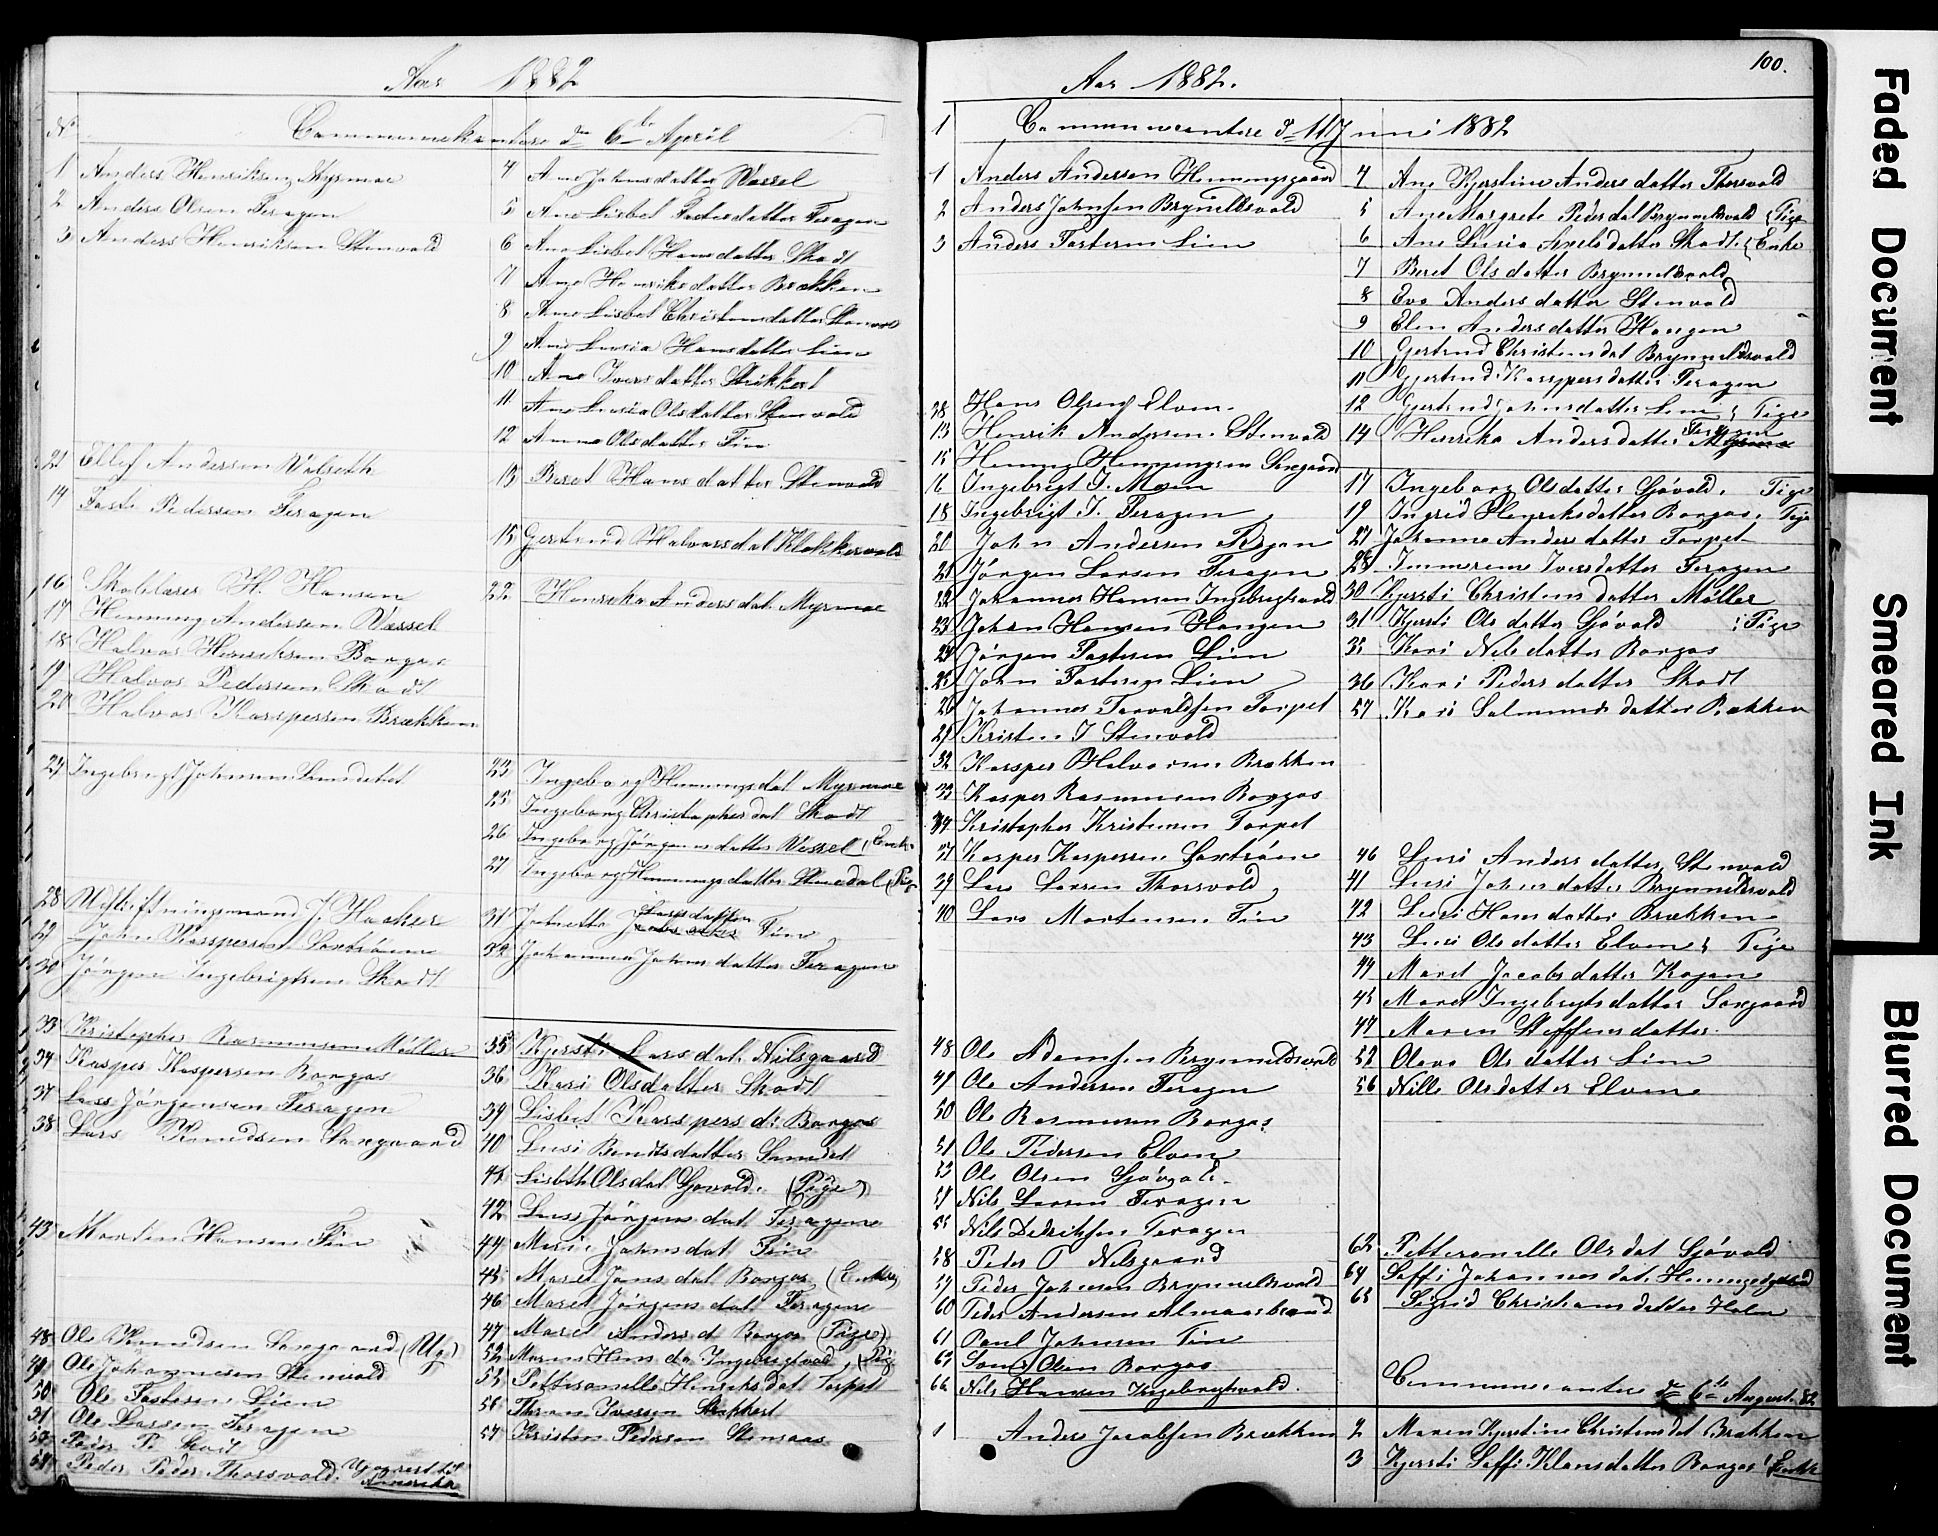 Aar 1882
No
Communekantere d. 6te April
1 Anders Henriksen Myrmoe
2 Anders Olsen Feragen
3 Anders Henriksen Stenvold
21 Ellef Andersen Valseth
14 Faste Pedersen Feragen
16 Skolelærer H. Hansen
17 Henning Andersen Vessel
18 Halvor Henriksen Borgos
19 Halvor Pedersen Skodt
20 Halvor Kasspersen Brækken
24 Ingebrigt Johnsen Sundetet
28 J. Haaker
29 John Kasspersen
30 Jörgen Ingebrigtsen Skodt
33 Kristopher Rasmussen Möller
34 Kasper Kaspersen Borgos
37 Lars Jörgensen Feragen
38 Lars Knudsen Sexgaard
43 Morten Hansen Fin
48 Ole Knudsen Sexgaard (Ug)
49 Ole Johannesen Stenvold
50 Ole Fastesen Lien
51 Ole Larsen Feragen
Peder P. Skodt
Peder Peder Thorsvold
Amerika
4 Ane Johnsdatter Vessel
5 Ane Lisbet Pedersdatter Feragen
6 Ane Lisbet Hansdatter Skodt
7 Ane Henriksdatter Brækken
8 Ane Lisbet Christensdatter Stenvold
9 Ane Lusia Hansdatter Lien
10 Ane Iversdatter Stikkert
11 Ane Lusia Olsdatter Stenvold
12 Anne Olsdatter Fin
13 Beret Hansdatter Stenvold
15 Gertrud Halvorsdat Klokkervold
22 Henrika Andersdat. Myrmoe
23 Ingeborg Henningsdat Myrmoe
25 Ingeborg Christophersdat Skodt
26 Ingeborg Jörgensdatter Vessel (Enke
27 Ingeborg Henningsdatter (Pig
31 Johnetta Larsdatter Fin
32 Johanna Johnsdatter Feragen
35 Kjersti Larsdat. Nilsgaard
36 Kari Olsdatter Skodt
39 Lisbet Kasspersd: Borgos
40 Lusi Bendtsdatter Sundet
41 Lisbeth Olsdat Gjövold. (Pige)
42 Lusi Jörgensdat Feragen
44 Marie Johnsdat Fin
45 Maret Jonsdat Borgos (Enke)
46 Maret Jörgensdat Feragen
47 Maret Andersd Borgos (Pige)
52 Maren Hansda Ingebrigtvold, (Pig
53 Petteronelle Henriksdat Torpet
56 Thron Iversen Stikkert
57 Kristen Pedersen Stensaas
100.
Aar 1882.
1 Communicantere d. 11 Juni 1882
1 Anders Andersen Henningsgaard
2 Anders Johnsen Brynnildsvold
3 Anders Fastersen Lien
38 Hans Olsen Elven.
13 Henrik Andersen Stenvold
15 Henning Henningsen Sexgaard
16 Ingebrigt I. Moen
18 Ingebrigt J. Feragen
20 John Andersen
21 Jörgen Larsen Feragen
22 Johannes Hansen Ingebrigtsvold
23 Johan Hansen Hangen
24 Jörgen Fastesen Lien
25 John Fastesen Lien
26 Johannes Torvaldsen Torpet
29 Kristen J Stenvold
32 Kasper Halvorsen Brækken
33 Kasper Rasmussen Borgos
34 Kristopher Kristensen Torpet
Kasper Kaspersen
39 Lars Larsen Thorsvold
40 Lars Mortensen Fin
48 Ole Adamsen Brynnildsvold
49 Ole Andersen Feragen
50 Ole Rasmussen Borgos
51 Ole Pedersen Elven
53 Ole Olsen Gjövold.
54 Nils Larsen Feragen
55 Nils Didriksen Feragen
58 Peder O Nilsgaard
59 Peder Johnsen Brynnildsvold
60 Peder Andersen Almaasbraad
61 Paul Johnsen Fin
63 Olsen Borgos
66 Nils Hansen Ingebrigtsvold.
4 Ane Kjerstine Andersdatter Thorsvold
5 Ane Margrete Pedersdat Brynnildsvold (Pige
6 Ane Lusia datter Skodt. (Enke
7 Beret Olsdatter Brynnildsvold
8 Eva Andersdatter Stenvold
9 Elen Andersdatter Hangen
10 Gjertrud Christensdat Brynnildsvold
11 Gjertrud Kasspersdatter Feragen
12 Gjertrud Johnsdatter Lien Pige
14 Henrika Andersdatter Feragen
17 Ingeborg Olsdatter Gjövold. Pige
19 Ingrid Henriksdatter Borgos. Pige
27 Johanne Andersdatter Torpet
28 Immerens Iversdatter Feragen
30 Kjersti Christensdatter Möller
31 Kjersti Olsdatter Gjövold Pige
35 Kari Nilsdatter Borgos
36 Kari Pedersdatter Skodt
57 Kari Salmundsdatter Brækken
46 Lusi Andersdatter Stenvold
41 Lusi Johnsdatter Brynnildsvold
42 Lusi Hansdatter Brækken
43 Lusi Olsdatter Elven Pige
44 Maret Jacobsdatter Kojan
45 Maret Ingebrigtsdatter Sexgaard
47 Maren Steffensdatter.
52 Olava Olsdatter Lien
56 Nille Olsdatter Elven
62 Petteronelle Olsdat Gjövold
64 Seffi Johannesdat. Henningsgaard
65 Sigrid Christiansdatter Holm
Communicantere d. 6te August. 82
1 Anders Jacobsen Brækken
2 Maren Kjerstine Christensdat Brækken
3 Kjersti Seffi Klausdatter Borgos (Enke
Faded Document
Smeared Ink
Blurred Document